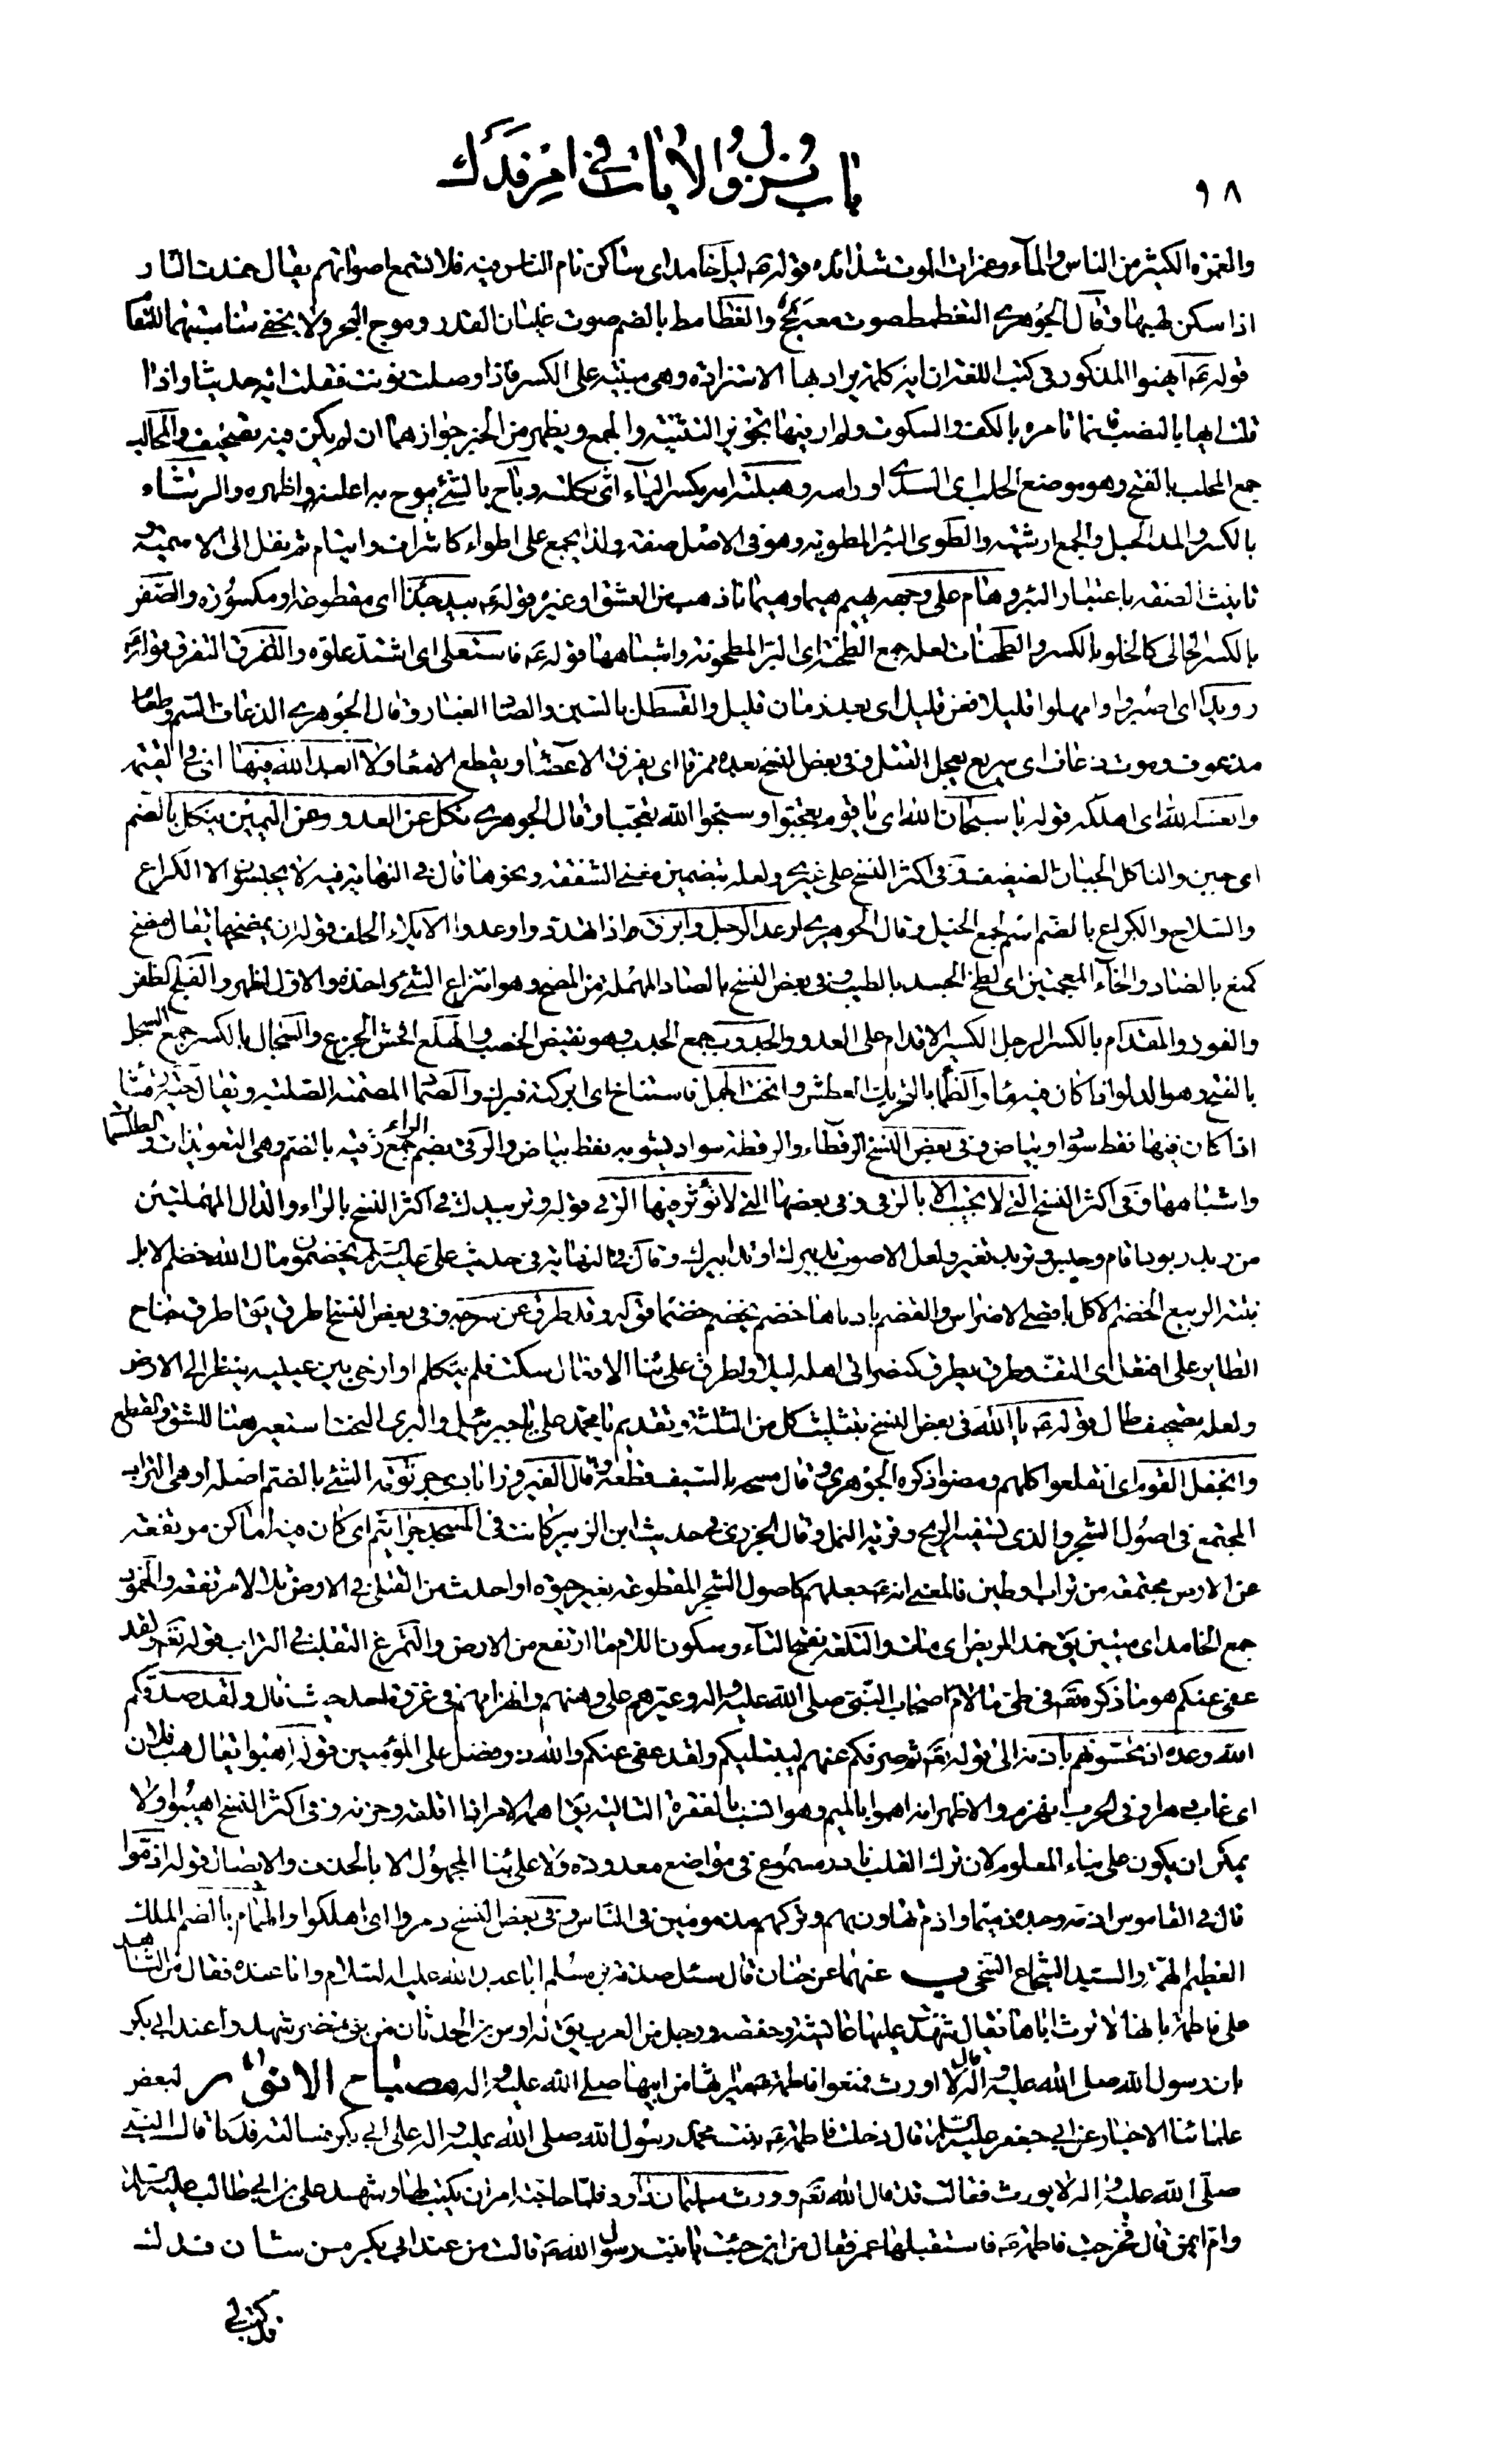 باب نزول الايات في امر فدك
٩٨
والغمرة الكثير من الناس والماء وغمرات الموت شدائده قوله ع ليل خامد اى ساكن نام الناس فيه فلا تسمع اصواتهم يقال خمدت النار
اذا سكن لهبها وقال الجوهرى التغطمط صوت معه بحح والغطامط بالضم صوت غليان القدر وموج البحر ولا يخفى مناسبتهما للمقام
قوله ع ايهنوا المذكور فى كتب اللغة ان ايه كلمة يراد بها الاستزادة وهى مبنية على الكسر فاذا وصلت نونت فقلت ايه حديثا واذا
قلت ايها بالنصب فانما تامره بالكف والسكوت ولم ار فيها تجويز التثنية والجمع ويظهر من الخبر جوازهما ان لم يكن فيه تصحيف والمحالب
جمع المحلب بالفتح وهو موضع الحلب اى الثدى او راسه وهبلته امه بكسر الباء اى ثكلته وباح بالشئ يبوح به اعلنه واظهره والرشاء
بالكسر والمد الحبل والجمع ارشية والطوى البئر المطوية وهو فى الاصل صفة ولذا يجمع على اطواء كاشراف وايتام ثم نقل الى الاسمية و
تانيث الصفة باعتبار البئر وهام على وجهه يهيم هيما وهيمانا ذهب من العشق او غيره قوله ع بيد جذاء اى مقطوعة او مكسورة والصفر
بالكسر الخالى كالخلو بالكسر والطحنات لعله جمع الطحنة اى البر المطحونة واشباهها قوله ع فاستعلى اى اشتد علوه والتمزق التفرق قوله ع
رويدا اى اصبروا وامهلوا قليلا فعن قليل اى بعد زمان قليل والقسطل بالسين والصاد الغبار وقال الجوهرى الذعاف السم وطعام
مذعوف وموت ذعاف اى سريع يعجل القتل وفى بعض النسخ بعده ممزقا اى يفرق الاعضاء ويقطع الامعاء ولا ابعد الله فيها انفى القتم
واتعسه الله اى اهلكه قوله يا سبحان الله اى يا قوم تعجبوا وسبحوا الله تعجبا وقال الجوهرى نكل عن العدو وعن اليمين ينكل بالضم
اى جبن والناكل الجبان الضعيف وفى اكثر النسخ على غيرى ولعله بتضمين معنى الشفقة ونحوها قال فى النهاية فيه لا يحبس الا الكراع
والسلاح والكراع بالضم اسم لجمع الخيل وقال الجوهرى ارعد الرجل وابرق اذا تهدد واوعد والايلاء الحلف قوله ان يمضخها يقال مضخ
كمنع بالضاد والخاء المعجمتين اى لطخ الجسد بالطيب وفى بعض النسخ بالصاد المهملة من المصخ وهو انتزاع الشئ واخذه والاول اظهر والفلج الظفر
والفوز والمقدام بالكسر الرجل الكثير الاقدام على العدو والجدوب جمع الجدب وهو نقيض الخصب والهلع افحش الجزع والسجال بالكسر جمع السجل
بالفتح وهو الدلو اذا كان فيه ماء والظماء بالتحريك العطش وانخت الجمل فاستناخ اى ابركته فبرك والصماء المصمتة الصلبة ويقال حية رقشاء
اذا كان فيها نقط سواد وبياض وفى بعض النسخ الرقطاء والرقطة سواد يشوبه نقط بياض والرقى بضم الراء جمع رقية بالضم وهى التعويذات والطلسمات
واشباهها وفى اكثر النسخ التى لا تجيب الا بالرقى وفى بعضها التى لا تؤثر فيها الرقى قوله وتربيدك فى اكثر النسخ بالراء والدال المهملتين
من ربد ربودا قام وحبس وتربد تغير ولعل الاصوب تدبيرك او تدابيرك وقال فى النهاية فى حديث على عليه السلام يخضمون مال الله خضم الابل
نبتة الربيع الخضم الاكل باقصى الاضراس والقضم بادناها خضم يخضم خضما قوله وقد طرق عن سرحه وفى بعض النسخ اطرق يق اطرق جناح
الطاير على افتعل اى التف وطرق يطرق كنصر اتى اهله ليلا واطرق على بناء الافعال سكت فلم يتكلم او ارخى بين عينيه ينظر الى الارض
ولعله تصحيف طال قوله ع يا الله فى بعض النسخ بتثليث كل من الثلثة وتقديم يا محمد على يا جبرئيل والبرى النحت استعير هنا للشق والقطع
وانجفل القوم اى انقلعوا كلهم ومضوا ذكره الجوهرى وقال مسحه بالسيف قطعه وقال الفيروزابادى جرثومة الشئ بالضم اصله او هى التراب
المجتمع فى اصول الشجر والذى تسفيه الريح وقرية النمل وقال الجزرى فى حديث ابن الزبير كانت فى المسجد جراثيم اى كان فيه اماكن مرتفعة
عن الارض مجتمعة من تراب او طين فالمعنى انه ع جعلهم كاصول الشجر المقطوعة بغير حيوة او احدث من القتلى فى الارض تلالا مرتفعة والخمود
جمع الخامد اى ميتين يق خمد المريض اى مات والتلعة بفتح التاء وسكون اللام ما ارتفع من الارض والتمرغ التقلب فى التراب قوله تعالى ولقد
عفى عنكم هو ما ذكره تعالى فى طى ما لام اصحاب النبى صلى الله عليه واله وعيرهم على وهنهم وانهزامهم فى غزوة احد حيث قال ولقد صدقكم
الله وعده اذ تحسونهم باذنه الى قوله تع ثم صرفكم عنهم ليبتليكم ولقد عفى عنكم والله ذو فضل على المؤمنين قوله اهبوا يقال هب فلان
اى غاب دهرا وفى الحرب انهزم والاظهر انه اهموا بالميم وهو انسب بالفقرة التالية يق اهمه الامر اذا اقلقه وحزنه وفى اكثر النسخ اهيبوا ولا
يمكن ان يكون على بناء المعلوم لان ترك القلب نادر مسموع فى مواضع معدودة ولا على بناء المجهول الا بالحذف والايصال قوله اذموا
قال فى القاموس اذمه وجده ذميما واذم تهاون بهم وتركهم مذمومين فى الناس وفى بعض النسخ دمروا اى اهلكوا والهمام بالضم الملك
العظيم الهمة والسيد الشجاع السخى ب عنهما عن حنان قال سئل صدقة بن مسلم ابا عبد الله عليه السلام وانا عنده فقال من الشاهد
على فاطمة بانها لا ترث اباها فقال شهدت عليها عايشة وحفصة ورجل من العرب يق له اوس بن الحدثان من بنى نضر شهدوا عند ابى بكر
بان رسول الله صلى الله عليه واله قال لا اورث فمنعوا فاطمة ع ميراثها من ابيها صلى الله عليه واله مصباح الانوار لبعض
علمائنا الاخيار عن ابى جعفر عليه السلام قال دخلت فاطمة ع بنت محمد رسول الله صلى الله عليه واله على ابى بكر فسالته فدكا قال النبى
صلى الله عليه واله لا يورث فقالت قد قال الله تع وورث سليمان داود فلما حاجته امر ان يكتب لها وشهد على بن ابى طالب عليه السلام
وام ايمن قال فخرجت فاطمة ع فاستقبلها عمر فقال من اين جئت يا بنت رسول الله ص قالت من عند ابى بكر من شان فدك
قد كتب لى